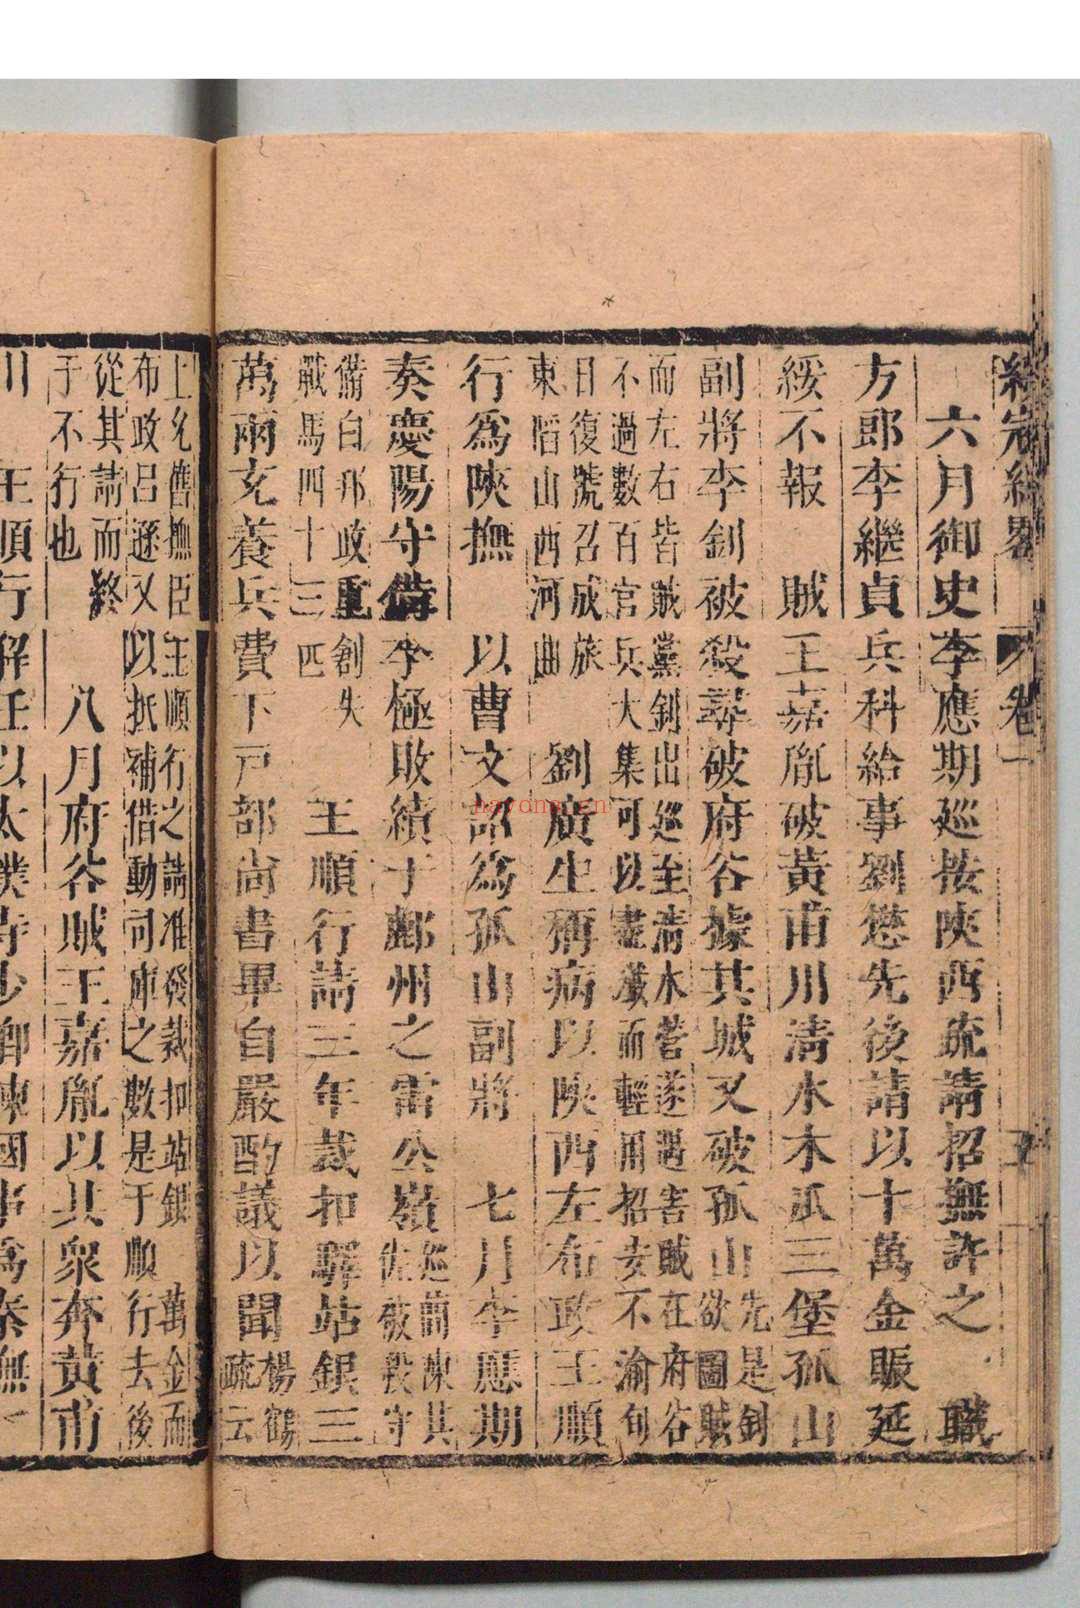 綏寇紀畧 卷一 五
六月御史李應期巡按陝西疏請招撫許之 職
方郎李繼貞兵科給事劉懋先後請以十萬金賑延
綏不報 賊王嘉胤破黃甫川清水木瓜三堡孤山
副將李釗被殺尋破府谷據其城又破孤山先是釗欲圖賊
而左右皆賊黨釗出巡至清水菅遂遇害賊在府谷
不過數百官兵大集可以盡殲而輕用招安不渝旬
日復號召成旅
東㨶山西河曲
劉廣生稱病以陝西左布政王順
行爲陝撫 以曹文詔爲孤山副將 七月李應期
奏慶陽守備李極敗績于鄜州之雷公嶺巡簡陳其
佐被殺守
備白邦政重創失
戰馬四十三匹
王順行請三年裁扣驛站銀三
萬兩充養兵費下戸部尚書畢自嚴酌議以聞楊鶴
疏云
上允舊撫臣王順行之請准發裁扣站銀萬金而
布政呂遜又以抵補借動司庫之數是于順行去後
從其請而終
于不行也
八月府谷賊王嘉胤以其衆奔黃甫
川 王順行解任以太僕寺少卿陳國事爲秦撫
hayong.cn